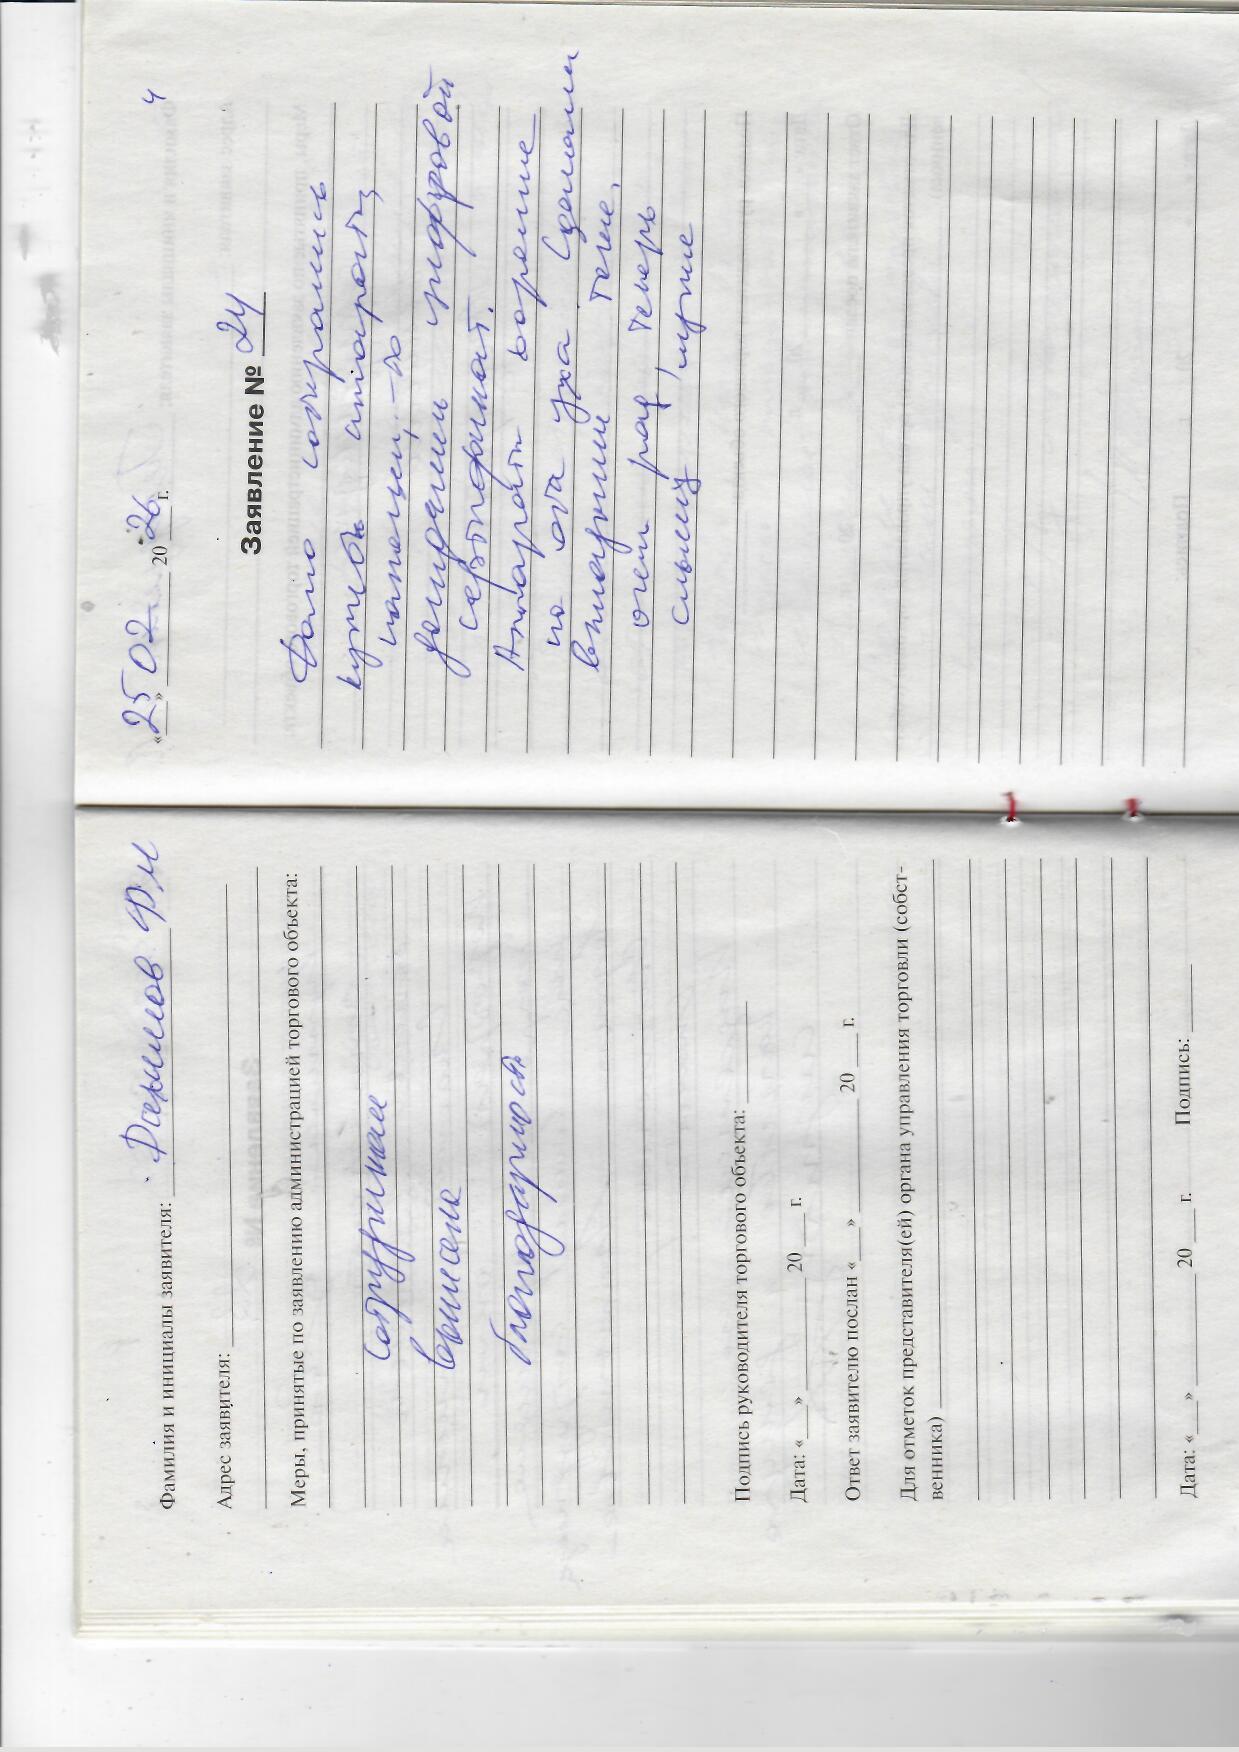 4
«25» 02 20 26 г.
Заявление № 24
Долго собирались
купить аппараты,
наконец,-то
цифровой
сертификат.
Аппараты
на оба уха. Сделали
вкладыши тоже.
очень рад, теперь
слышу лучше
Фамилия и инициалы заявителя: Ф.М
Адрес заявителя:
Меры, принятые по заявлению администрацией торгового объекта:
сотрудникам
вынесена
благодарность
Подпись руководителя торгового объекта:
Дата: «___» 20 ___ г.
Ответ заявителю послан «___» 20 ___ г.
Для отметок представителя(ей) органа управления торговли (собст-
венника)
Дата: «___» 20 ___ г. Подпись: